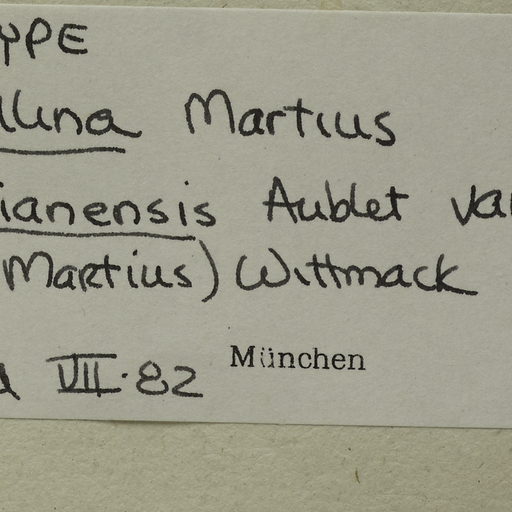 YPE
lluna Martius
ianensis Aublet va
(Martius) Wittmack
VII·82 München